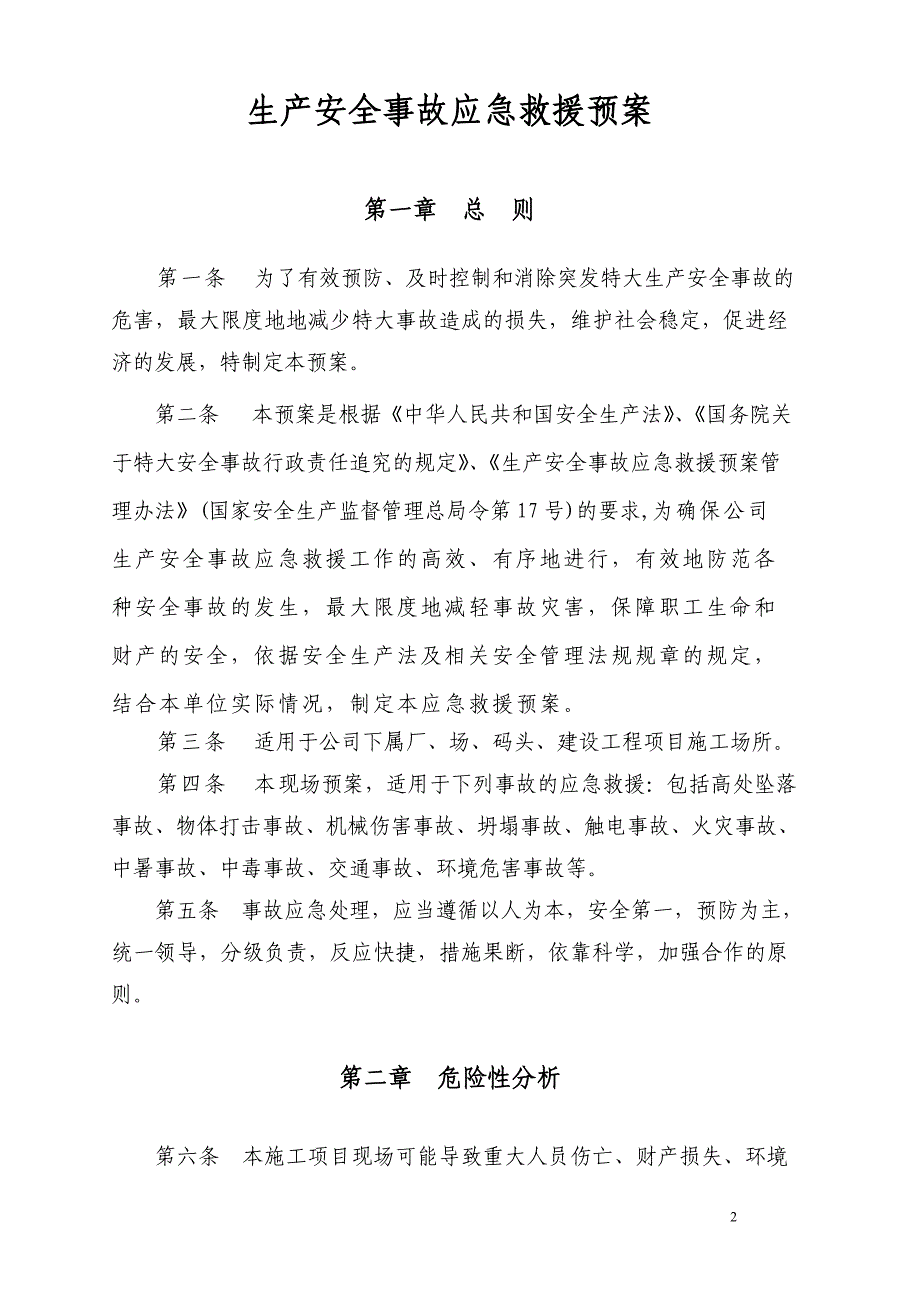 生产安全事故应急救援预案
第一章　总　则
第一条　为了有效预防、及时控制和消除突发特大生产安全事故的
危害，最大限度地地减少特大事故造成的损失，维护社会稳定，促进经
济的发展，特制定本预案。
第二条　本预案是根据《中华人民共和国安全生产法》、《国务院关
于特大安全事故行政责任追究的规定》、《生产安全事故应急救援预案管
理办法》(国家安全生产监督管理总局令第 17 号)的要求,为确保公司
生产安全事故应急救援工作的高效、有序地进行，有效地防范各
种安全事故的发生，最大限度地减轻事故灾害，保障职工生命和
财产的安全，依据安全生产法及相关安全管理法规规章的规定，
结合本单位实际情况，制定本应急救援预案。
第三条　适用于公司下属厂、场、码头、建设工程项目施工场所。
第四条　本现场预案，适用于下列事故的应急救援：包括高处坠落
事故、物体打击事故、机械伤害事故、坍塌事故、触电事故、火灾事故、
中暑事故、中毒事故、交通事故、环境危害事故等。
第五条　事故应急处理，应当遵循以人为本，安全第一，预防为主，
统一领导，分级负责，反应快捷，措施果断，依靠科学，加强合作的原
则。
第二章　危险性分析
第六条　本施工项目现场可能导致重大人员伤亡、财产损失、环境
2